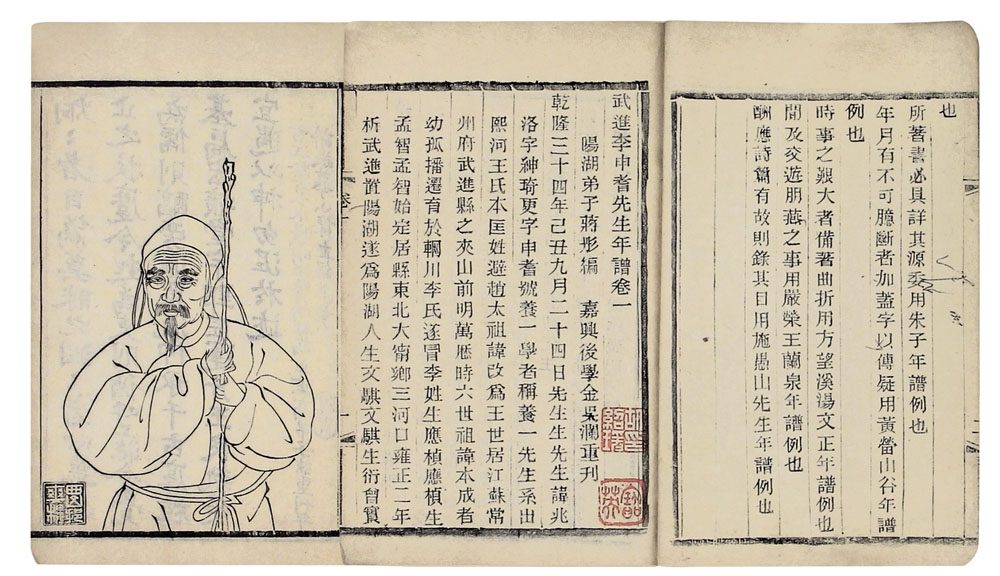 也
所著書必具詳其源委用朱子年譜例也
年月有不可臆斷者加蓋字以傳疑用黃䈣山谷年譜
例也
時事之艱大者備著曲折用方望溪湯文正年譜例也
聞及交遊朋燕之事用嚴榮王蘭泉年譜例也
酬應詩篇有故則錄其目用施愚山先生年譜例也
武進李申耆先生年譜卷一
陽湖弟子蔣彤編 嘉興後學金吳瀾重刊
乾隆三十四年己丑九月二十四日先生生先生諱兆
洛字紳琦更字申耆號養一學者稱養一先生系出
熙河王氏本匡姓避趙太祖諱改爲王世居江蘇常
州府武進縣之夾山前明萬曆時六世祖諱本成者
幼孤播遷育於輞川李氏遂冒李姓生應楨應楨生
孟智孟智始定居縣東北大甯鄉三河口雍正二年
析武進置陽湖遂爲陽湖人生文騏文騏生衍曾實